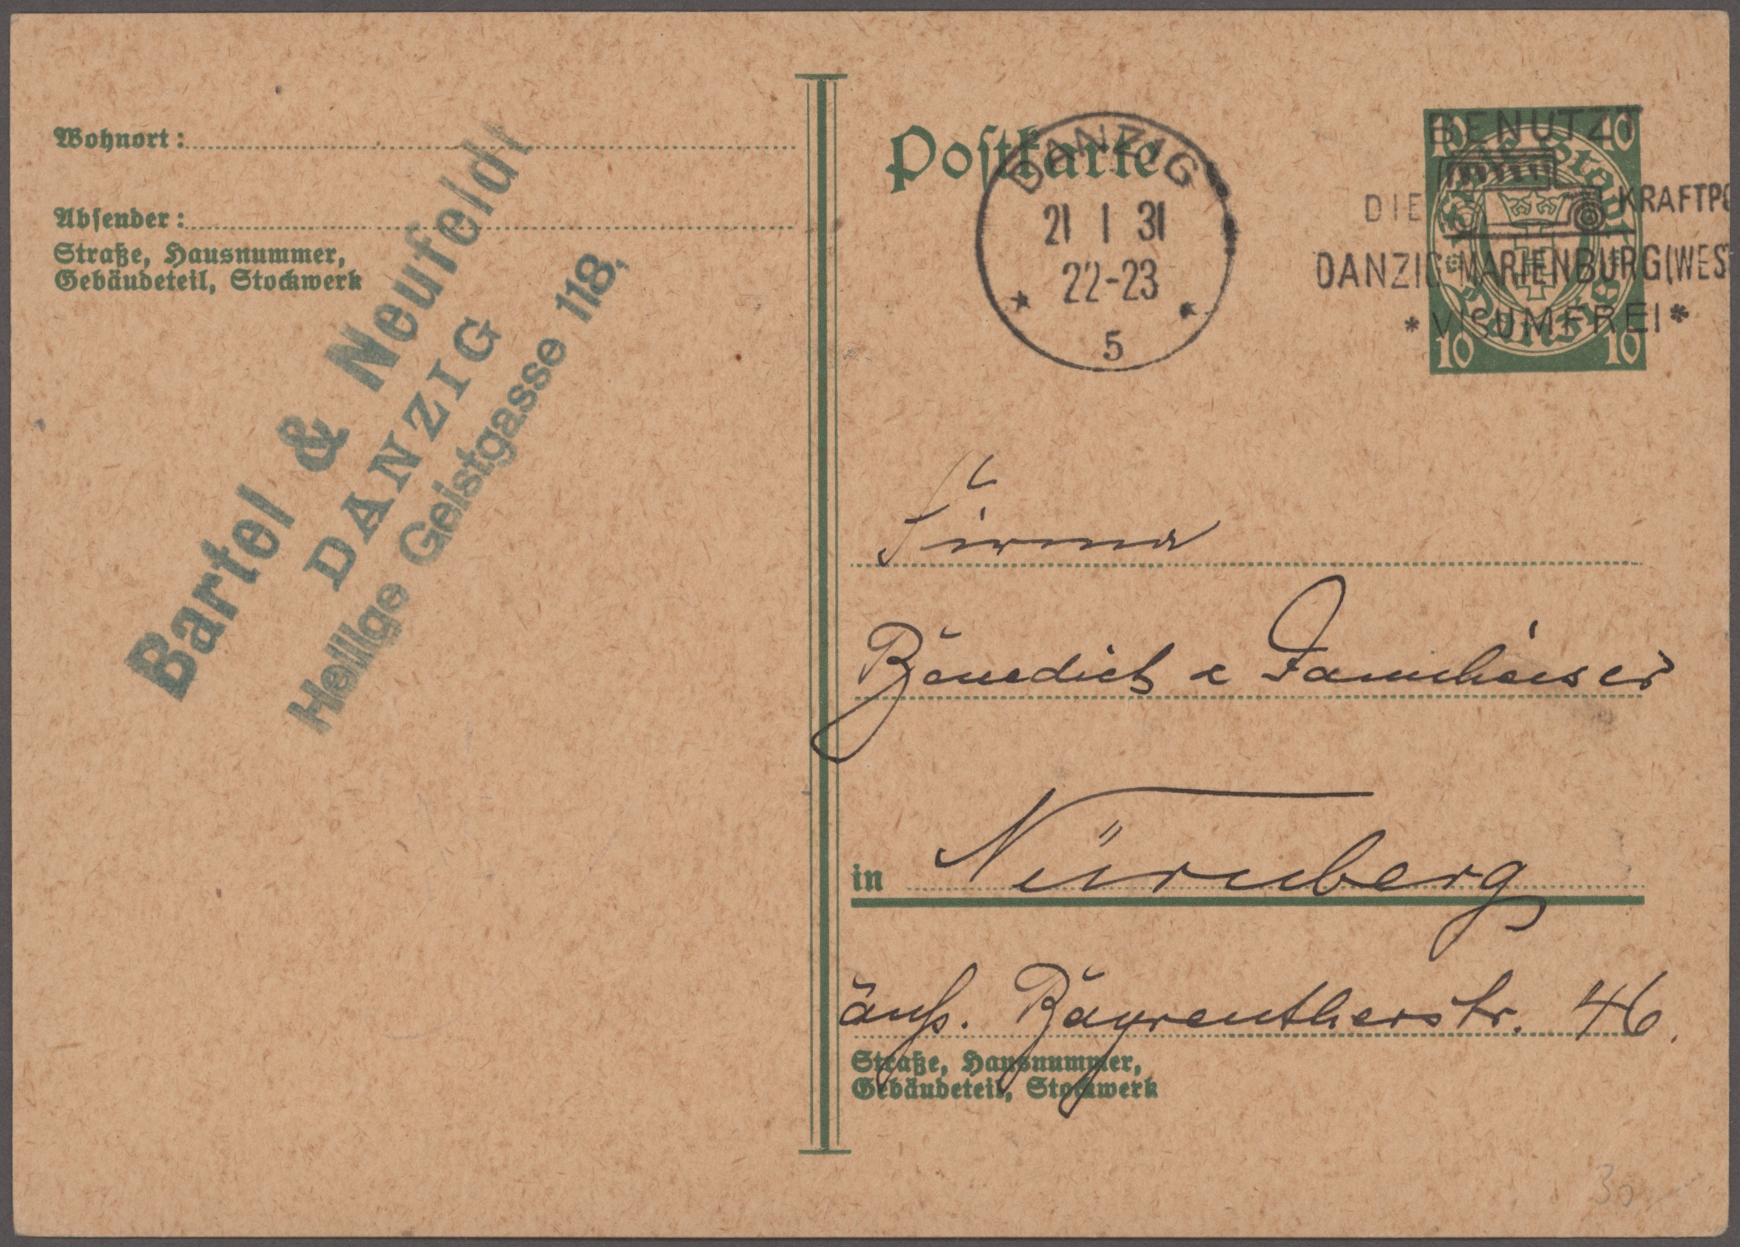 Wohnort:
Absender:
Straße, Hausnummer,
Gebäudeteil, Stockwerk
Bartel & Neufeldt
DANZIG
Heilige Geistgasse 118,
Postkarte
DANZIG
21 1 31
22-23
* *
5
BENUTZT
DIE KRAFTPO
DANZIG-MARIENBURG(WEST
*VISUMFREI*
10 10
10 10
Firma
Benedict & Dannheisser
in Nürnberg
äuß. Bayreutherstr. 46.
Straße, Hausnummer,
Gebäudeteil, Stockwerk
30